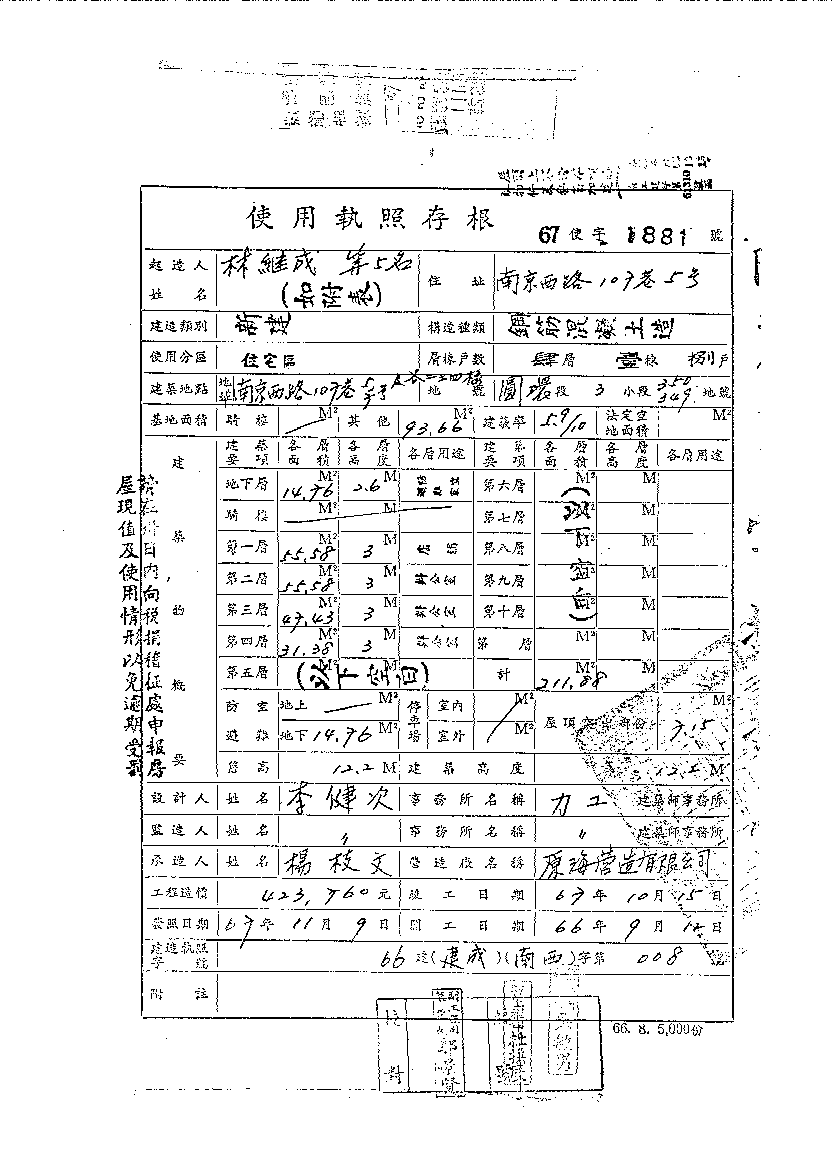 使用執照存根
67使字 1881 號
起造人姓名 林繼成 等5名 (如附表) 住址 南京西路107巷5号
建造類別 新建 構造種類 鋼筋混凝土造
使用分區 住宅區 層棟戶數 肆層 壹棟 捌戶
建築地點 地址 南京西路107巷 地號 圓環段 3 小段 350 349 地號
基地面積 騎樓 M² 其他 93.66 M² 建蔽率 5.9/10 法定空地面積 M²
建築物概要
建築要項 各層面積 各層高度 各層用途 建築要項 各層面積 各層高度 各層用途
地下層 14.76 M² 2.6 M 第六層 M² M
騎樓 M² M 第七層 M² M
第一層 55.58 M² 3 M 第八層 M² M
第二層 55.58 M² 3 M 第九層 M² M
第三層 47.43 M² 3 M 第十層 M² M
第四層 31.38 M² 3 M 第 層 M² M
第五層 M² M (以下空白) 計 211.88
(以下空白)
防空避難 地上 M² 停車場 室內 M² 屋頂 7.15 M²
地下 14.76 M² 室外
簷高 12.2 M 建築高度 12.2 M
設計人 姓名 李健次 事務所名稱 力工 建築師事務所
監造人 姓名 〃 事務所名稱 〃 建築師事務所
承造人 姓名 楊枝文 營造廠名稱 原海營造有限公司
工程造價 423,760元 竣工日期 67年10月15日
發照日期 67年11月9日 開工日期 66年9月12日
建造執照字號 66建(建成)(南西)字第 008 號
附註
請在卅日內向稅捐稽征處申報房
屋現值及使用情形以免逾期受罰
66. 8. 5,000份
校對